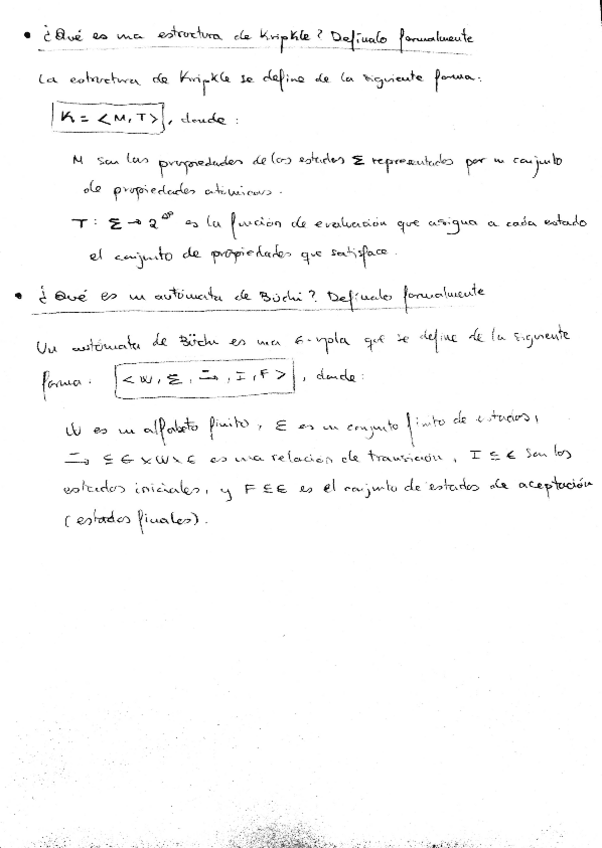 • ¿Qué es una estructura de Kripkle? Defínalo formalmente
La estructura de Kripkle se define de la siguiente forma:
K = < M, T >, donde:
M son las propiedades de los estados Σ representados por un conjunto
de propiedades atómicas.
T : Σ → 2^AP es la función de evaluación que asigna a cada estado
el conjunto de propiedades que satisface.
• ¿Qué es un autómata de Büchi? Defínalo formalmente
Un autómata de Büchi es una 6-upla que se define de la siguiente
forma. < W, Σ, →, I, F >, donde:
W es un alfabeto finito, Σ es un conjunto finito de estados,
→ ⊆ Σ × W × Σ es una relación de transición, I ⊆ Σ son los
estados iniciales, y F ⊆ Σ es el conjunto de estados de aceptación
(estados finales).